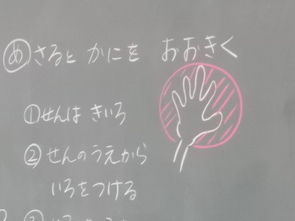 め さるとかにを おおきく
①せんは きいろ
②せんのうえから
いろをつける